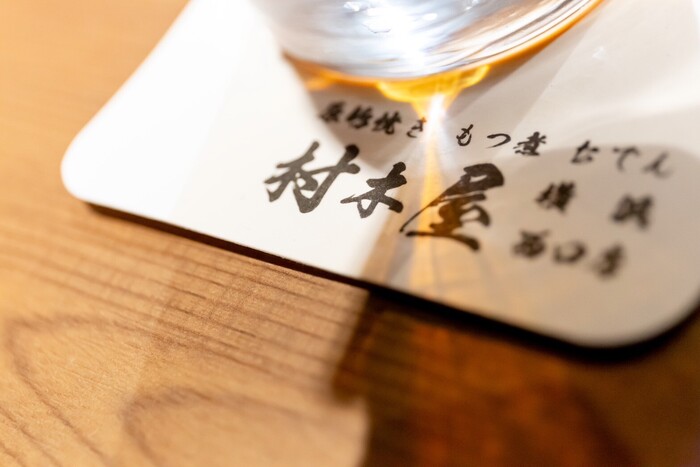 炭串焼き もつ煮 おでん
村木屋
横浜
西口店